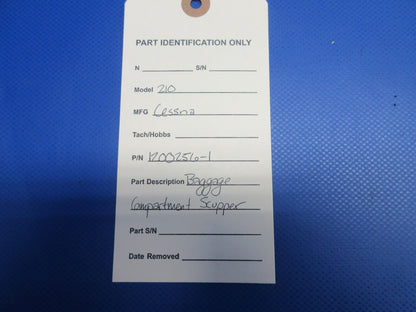 PART IDENTIFICATION ONLY
N ____________ S/N ____________
Model 210
MFG Cessna
Tach/Hobbs ____________
P/N 1200256-1
Part Description Baggage
Compartment Scupper
Part S/N ____________
Date Removed ____________